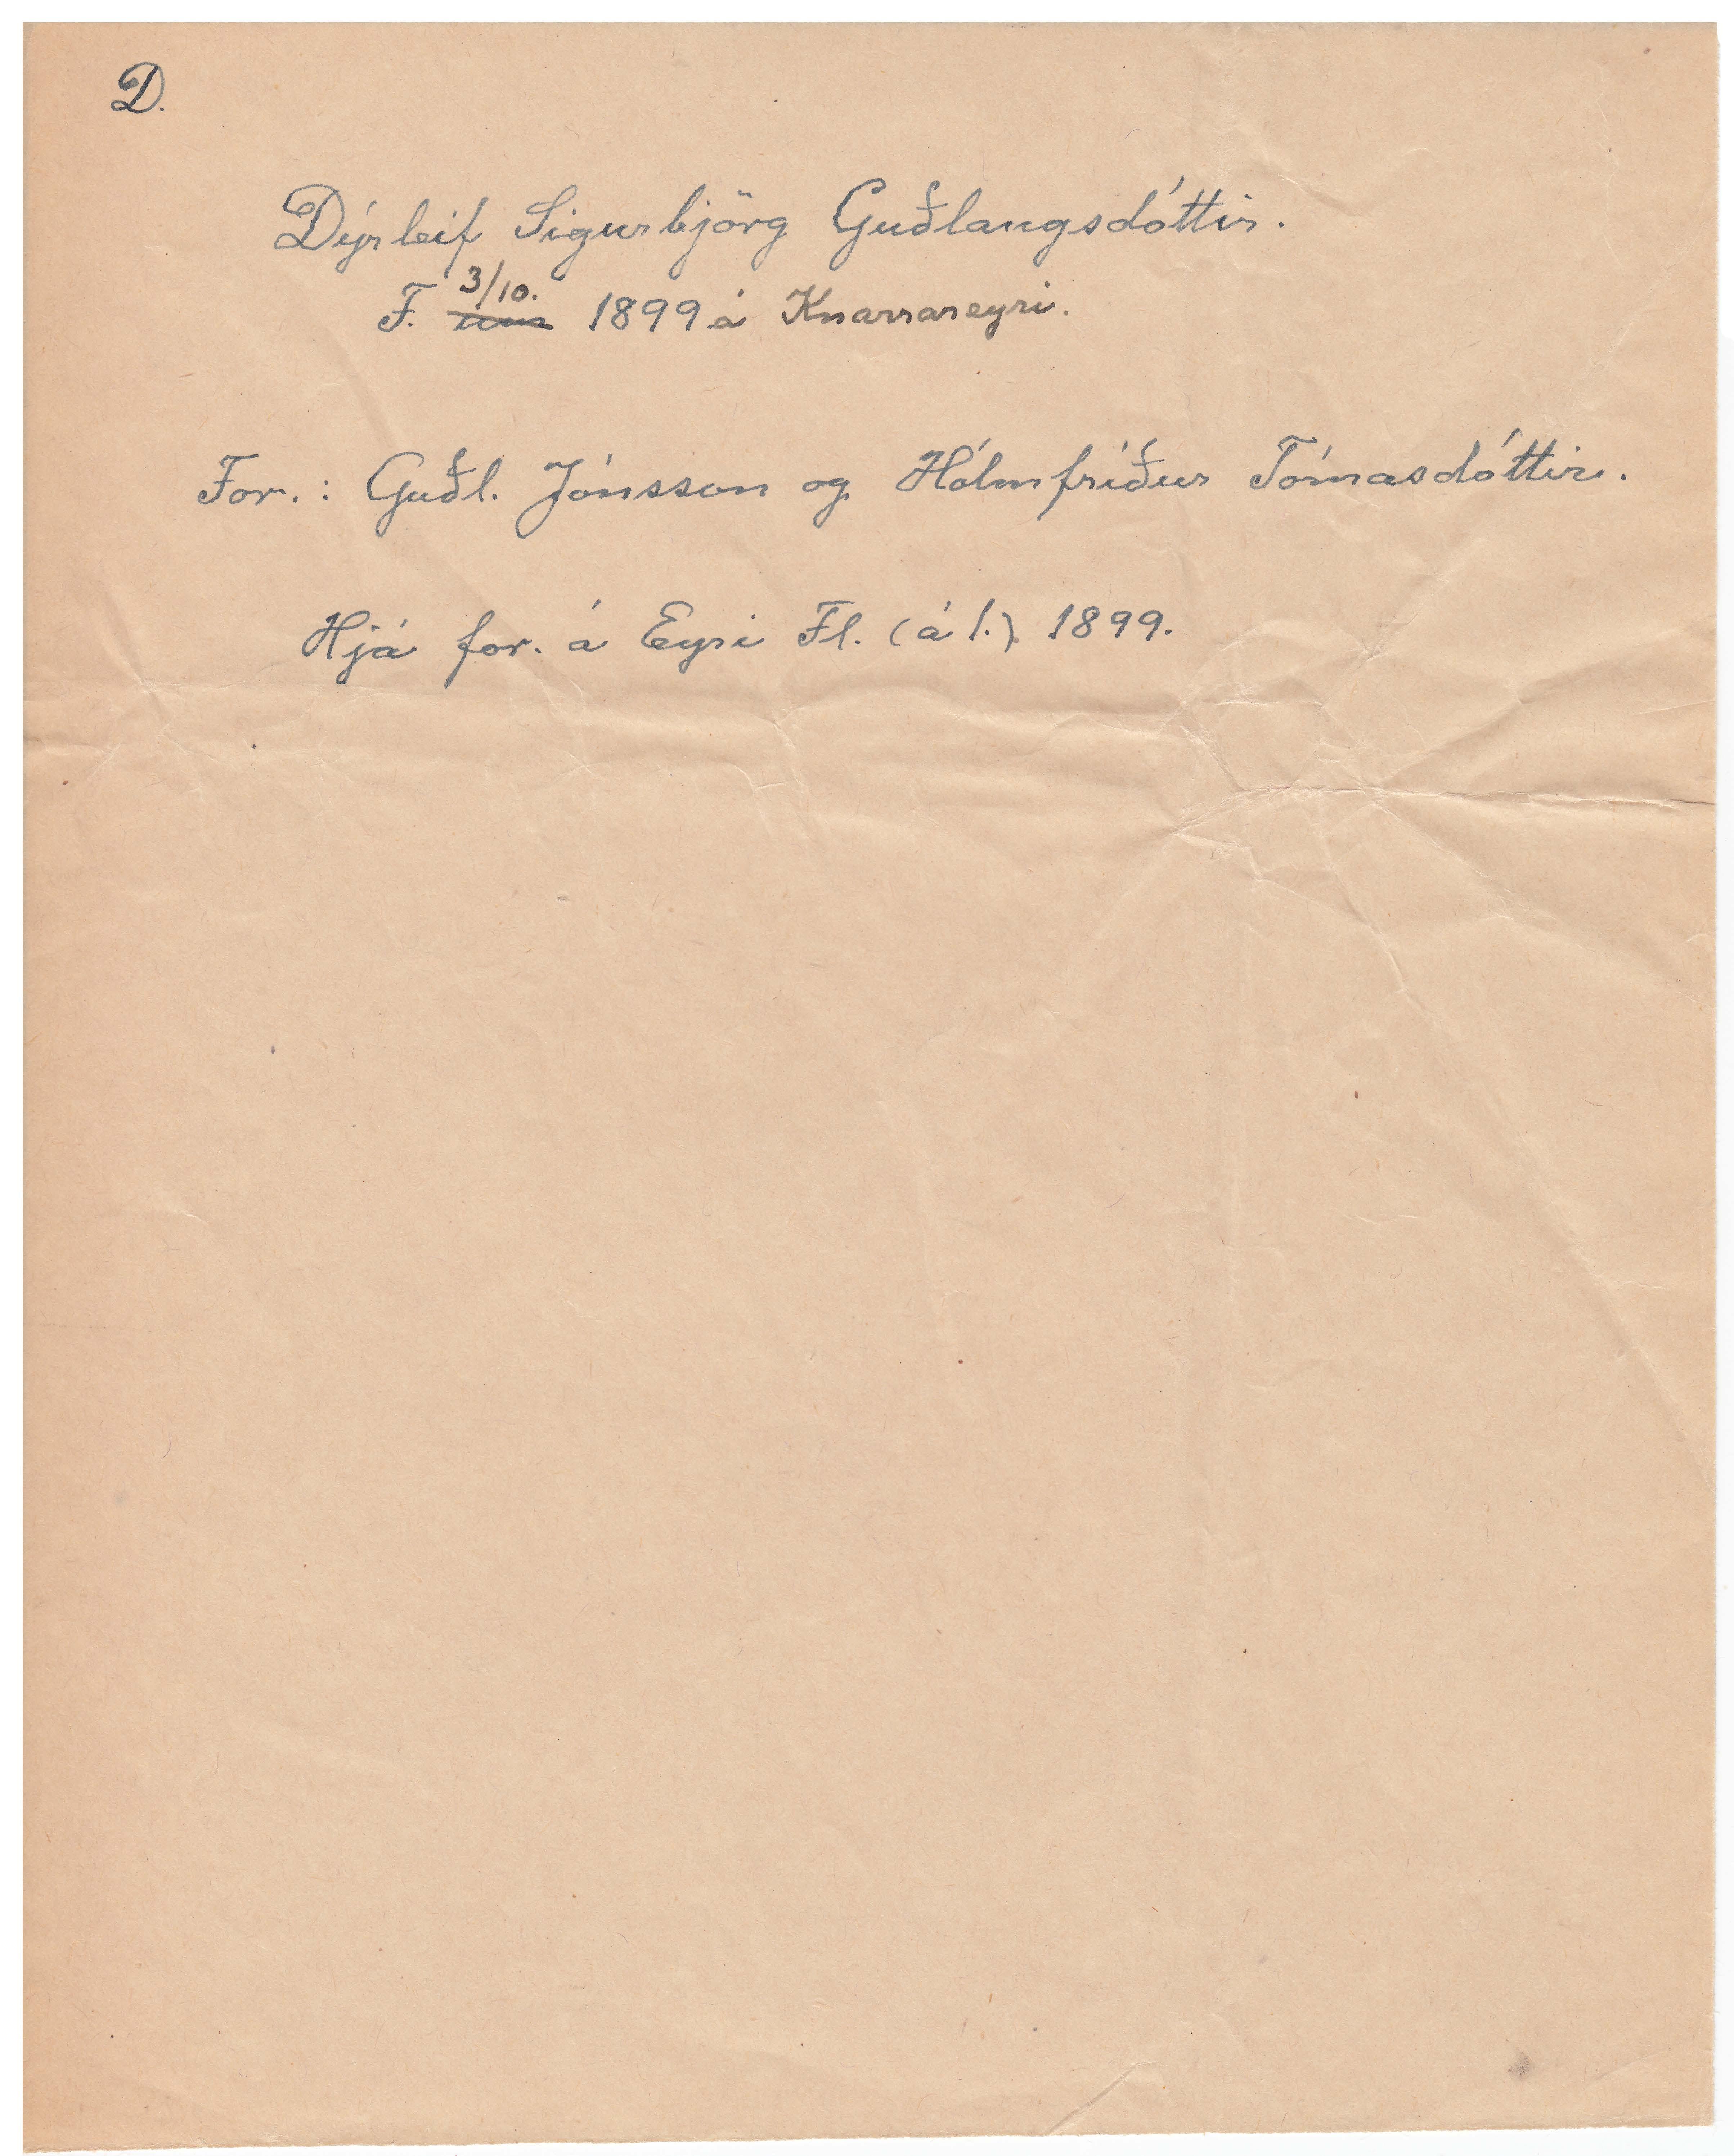 D.
Dýrleif Sigurbjörg Guðlaugsdóttir.
F. 3/10. 1899 á Knarrareyri.
For.: Guðl. Jónsson og Hólmfríður Tómasdóttir.
Hjá for. á Eyri Fl. (á 1.) 1899.